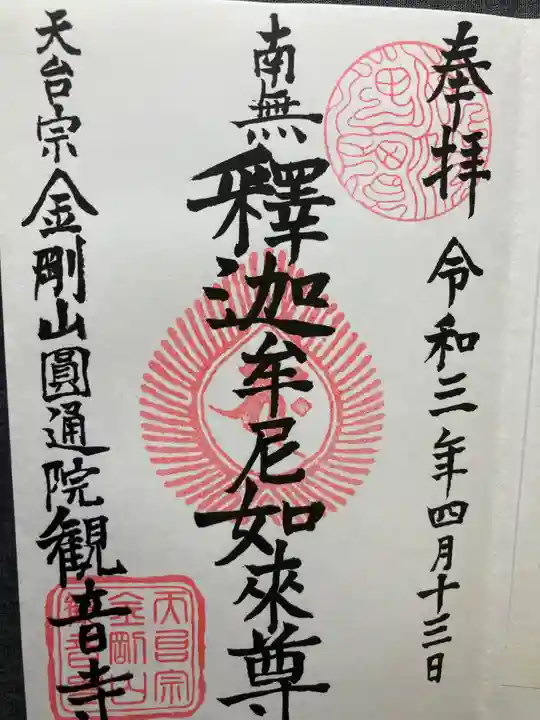 奉拝
令和三年四月十三日
南無釋迦牟尼如來尊
天台宗金剛山圓通院観音寺
天台宗
金剛山